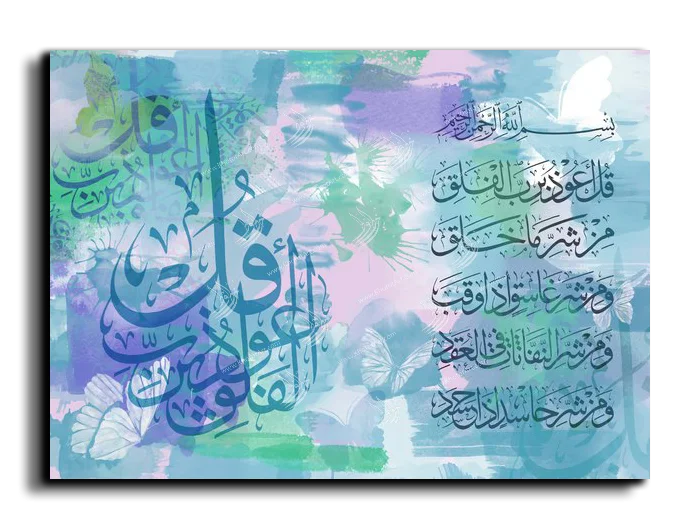 بسم الله الرحمن الرحيم
قل أعوذ برب الفلق
من شر ما خلق
ومن شر غاسق إذا وقب
ومن شر النفاثات في العقد
ومن شر حاسد إذا حسد
قل
أعوذ
برب
الفلق
قل
أعوذ
برب